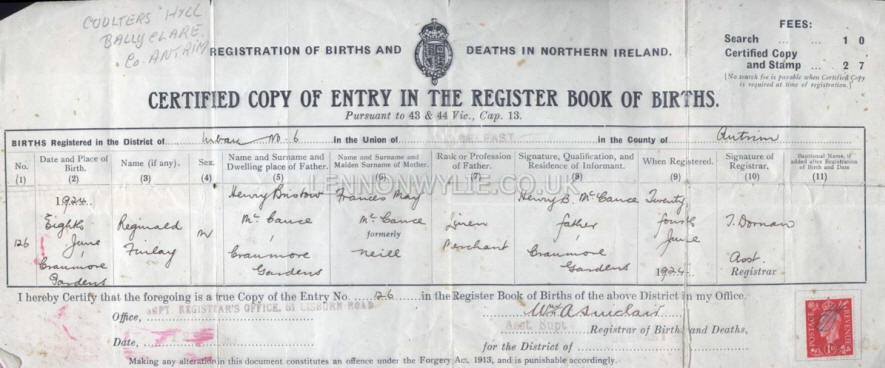 COULTERS HYLL
BALLYCLARE.
Co. ANTRIM
REGISTRATION OF BIRTHS AND DEATHS IN NORTHERN IRELAND.
FEES:
Search ... ... 1 0
Certified Copy
and Stamp ... 2 7
[No search fee is payable when Certified Copy
is required at time of registration.]
CERTIFIED COPY OF ENTRY IN THE REGISTER BOOK OF BIRTHS.
Pursuant to 43 & 44 Vic., Cap. 13.
BIRTHS Registered in the District of Urban No. 6 in the Union of BELFAST in the County of Antrim
No. Date and Place of Birth. Name (if any). Sex. Name and Surname and Dwelling place of Father. Name and Surname and Maiden Surname of Mother. Rank or Profession of Father. Signature, Qualification, and Residence of Informant. When Registered. Signature of Registrar. Baptismal Name, if added after Registration of Birth and Date
(1) (2) (3) (4) (5) (6) (7) (8) (9) (10) (11)
LENNONWYLIE.CO.UK
1924 Henry Bristow Frances May Henry B. McCance Twenty
Eighth Reginald M McCance McCance Linen father fourth J. Dornan
126 June Finlay Cranmore formerly Merchant Cranmore June Asst.
Cranmore Gardens Neill Gardens 1924 Registrar
Gardens
I hereby Certify that the foregoing is a true Copy of the Entry No. 126 in the Register Book of Births of the above District in my Office.
Office, SUPT. REGISTRAR'S OFFICE, 51 LISBURN ROAD
Wm A Sinclair
Asst Supt Registrar of Births and Deaths,
Date,
for the District of
Making any alteration in this document constitutes an offence under the Forgery Act, 1913, and is punishable accordingly.
POSTAGE REVENUE
1D